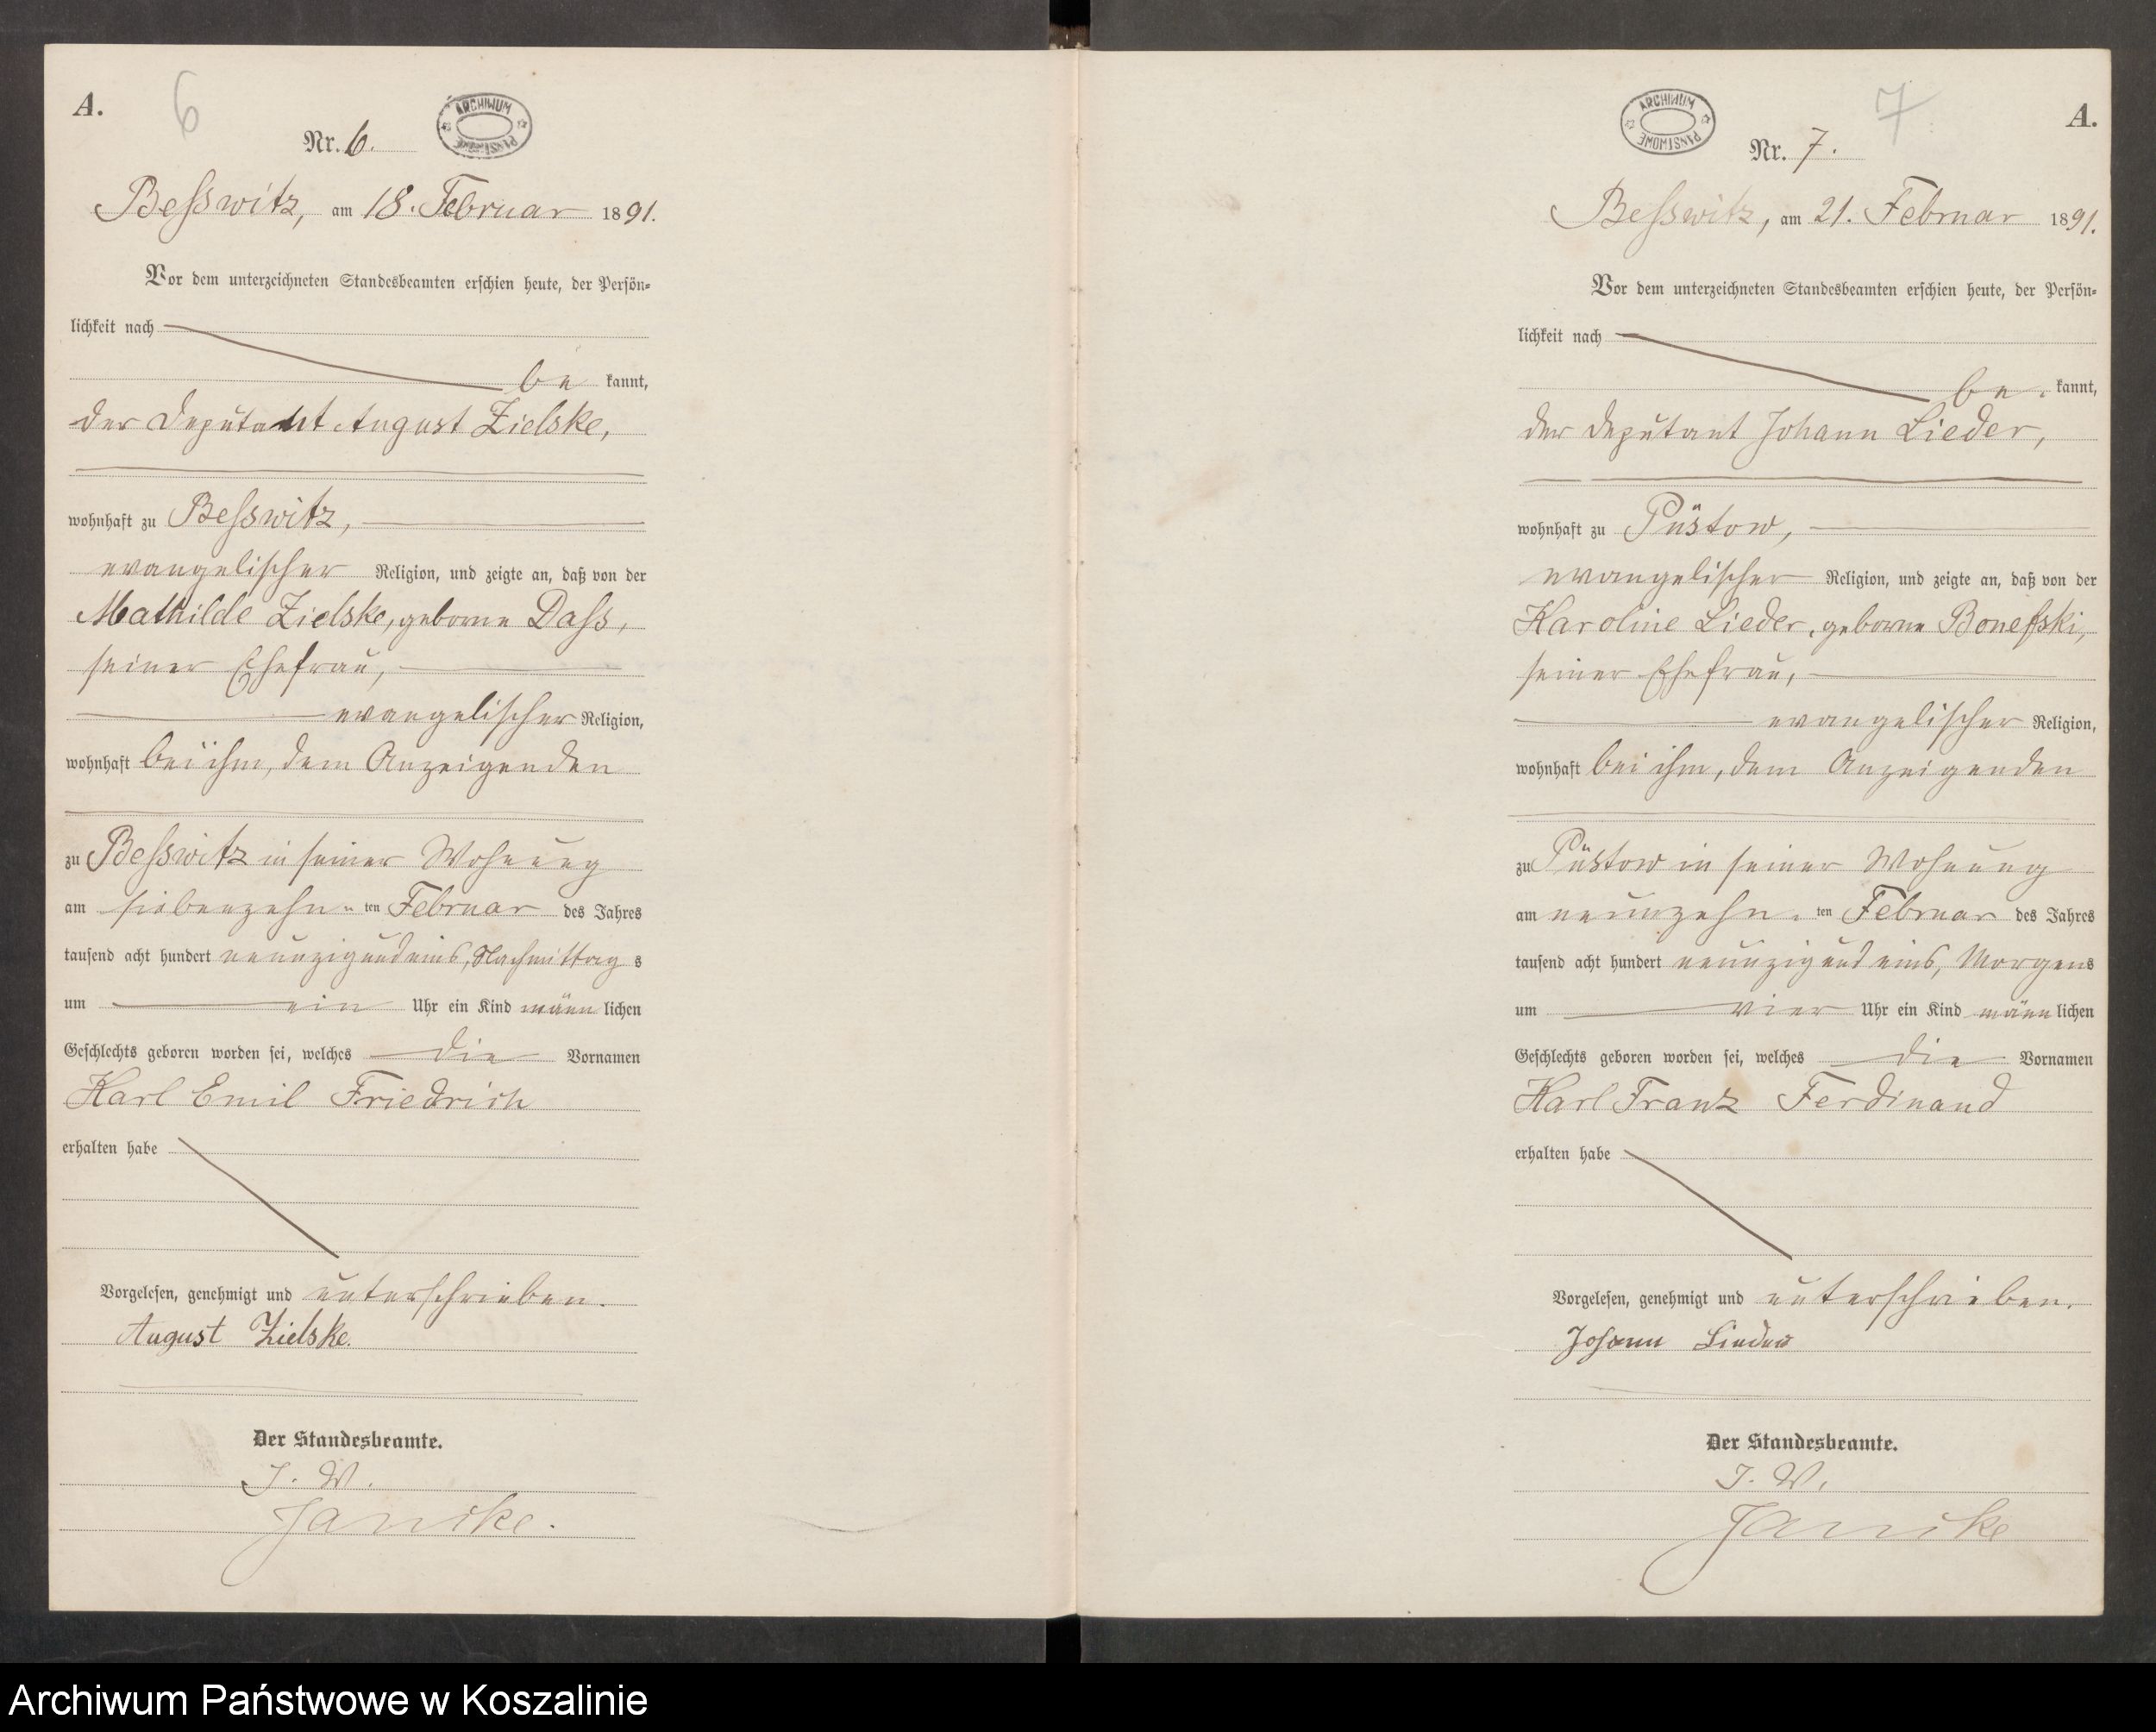 A.
6
ARCHIWUM PAŃSTWOWE
Nr. 6.
Beßwitz, am 18. Februar 1891.
Vor dem unterzeichneten Standesbeamten erschien heute, der Persön-
lichkeit nach
be kannt,
der Deputant August Zielske,
wohnhaft zu Beßwitz,
evangelischer Religion, und zeigte an, daß von der
Mathilde Zielske, geborne Daß,
seiner Ehefrau,
evangelischer Religion,
wohnhaft bei ihm, dem Anzeigenden
zu Beßwitz in seiner Wohnung
am siebenzehn ten Februar des Jahres
tausend acht hundert neunzig und eins, Nachmittag s
um ein Uhr ein Kind männ lichen
Geschlechts geboren worden sei, welches die Vornamen
Karl Emil Friedrich
erhalten habe
Vorgelesen, genehmigt und unterschrieben.
August Zielske.
Der Standesbeamte.
J. V.
Janike.
ARCHIWUM PAŃSTWOWE
7
A.
Nr. 7.
Beßwitz, am 21. Februar 1891.
Vor dem unterzeichneten Standesbeamten erschien heute, der Persön-
lichkeit nach
be kannt,
der Deputant Johann Lieder,
wohnhaft zu Püstow,
evangelischer Religion, und zeigte an, daß von der
Karoline Lieder, geborne Boneßki,
seiner Ehefrau,
evangelischer Religion,
wohnhaft bei ihm, dem Anzeigenden
zu Püstow in seiner Wohnung
am neunzehn ten Februar des Jahres
tausend acht hundert neunzig und eins, Morgens
um vier Uhr ein Kind männ lichen
Geschlechts geboren worden sei, welches die Vornamen
Karl Franz Ferdinand
erhalten habe
Vorgelesen, genehmigt und unterschrieben.
Johann Lieder
Der Standesbeamte.
J. V.
Janike
Archiwum Państwowe w Koszalinie